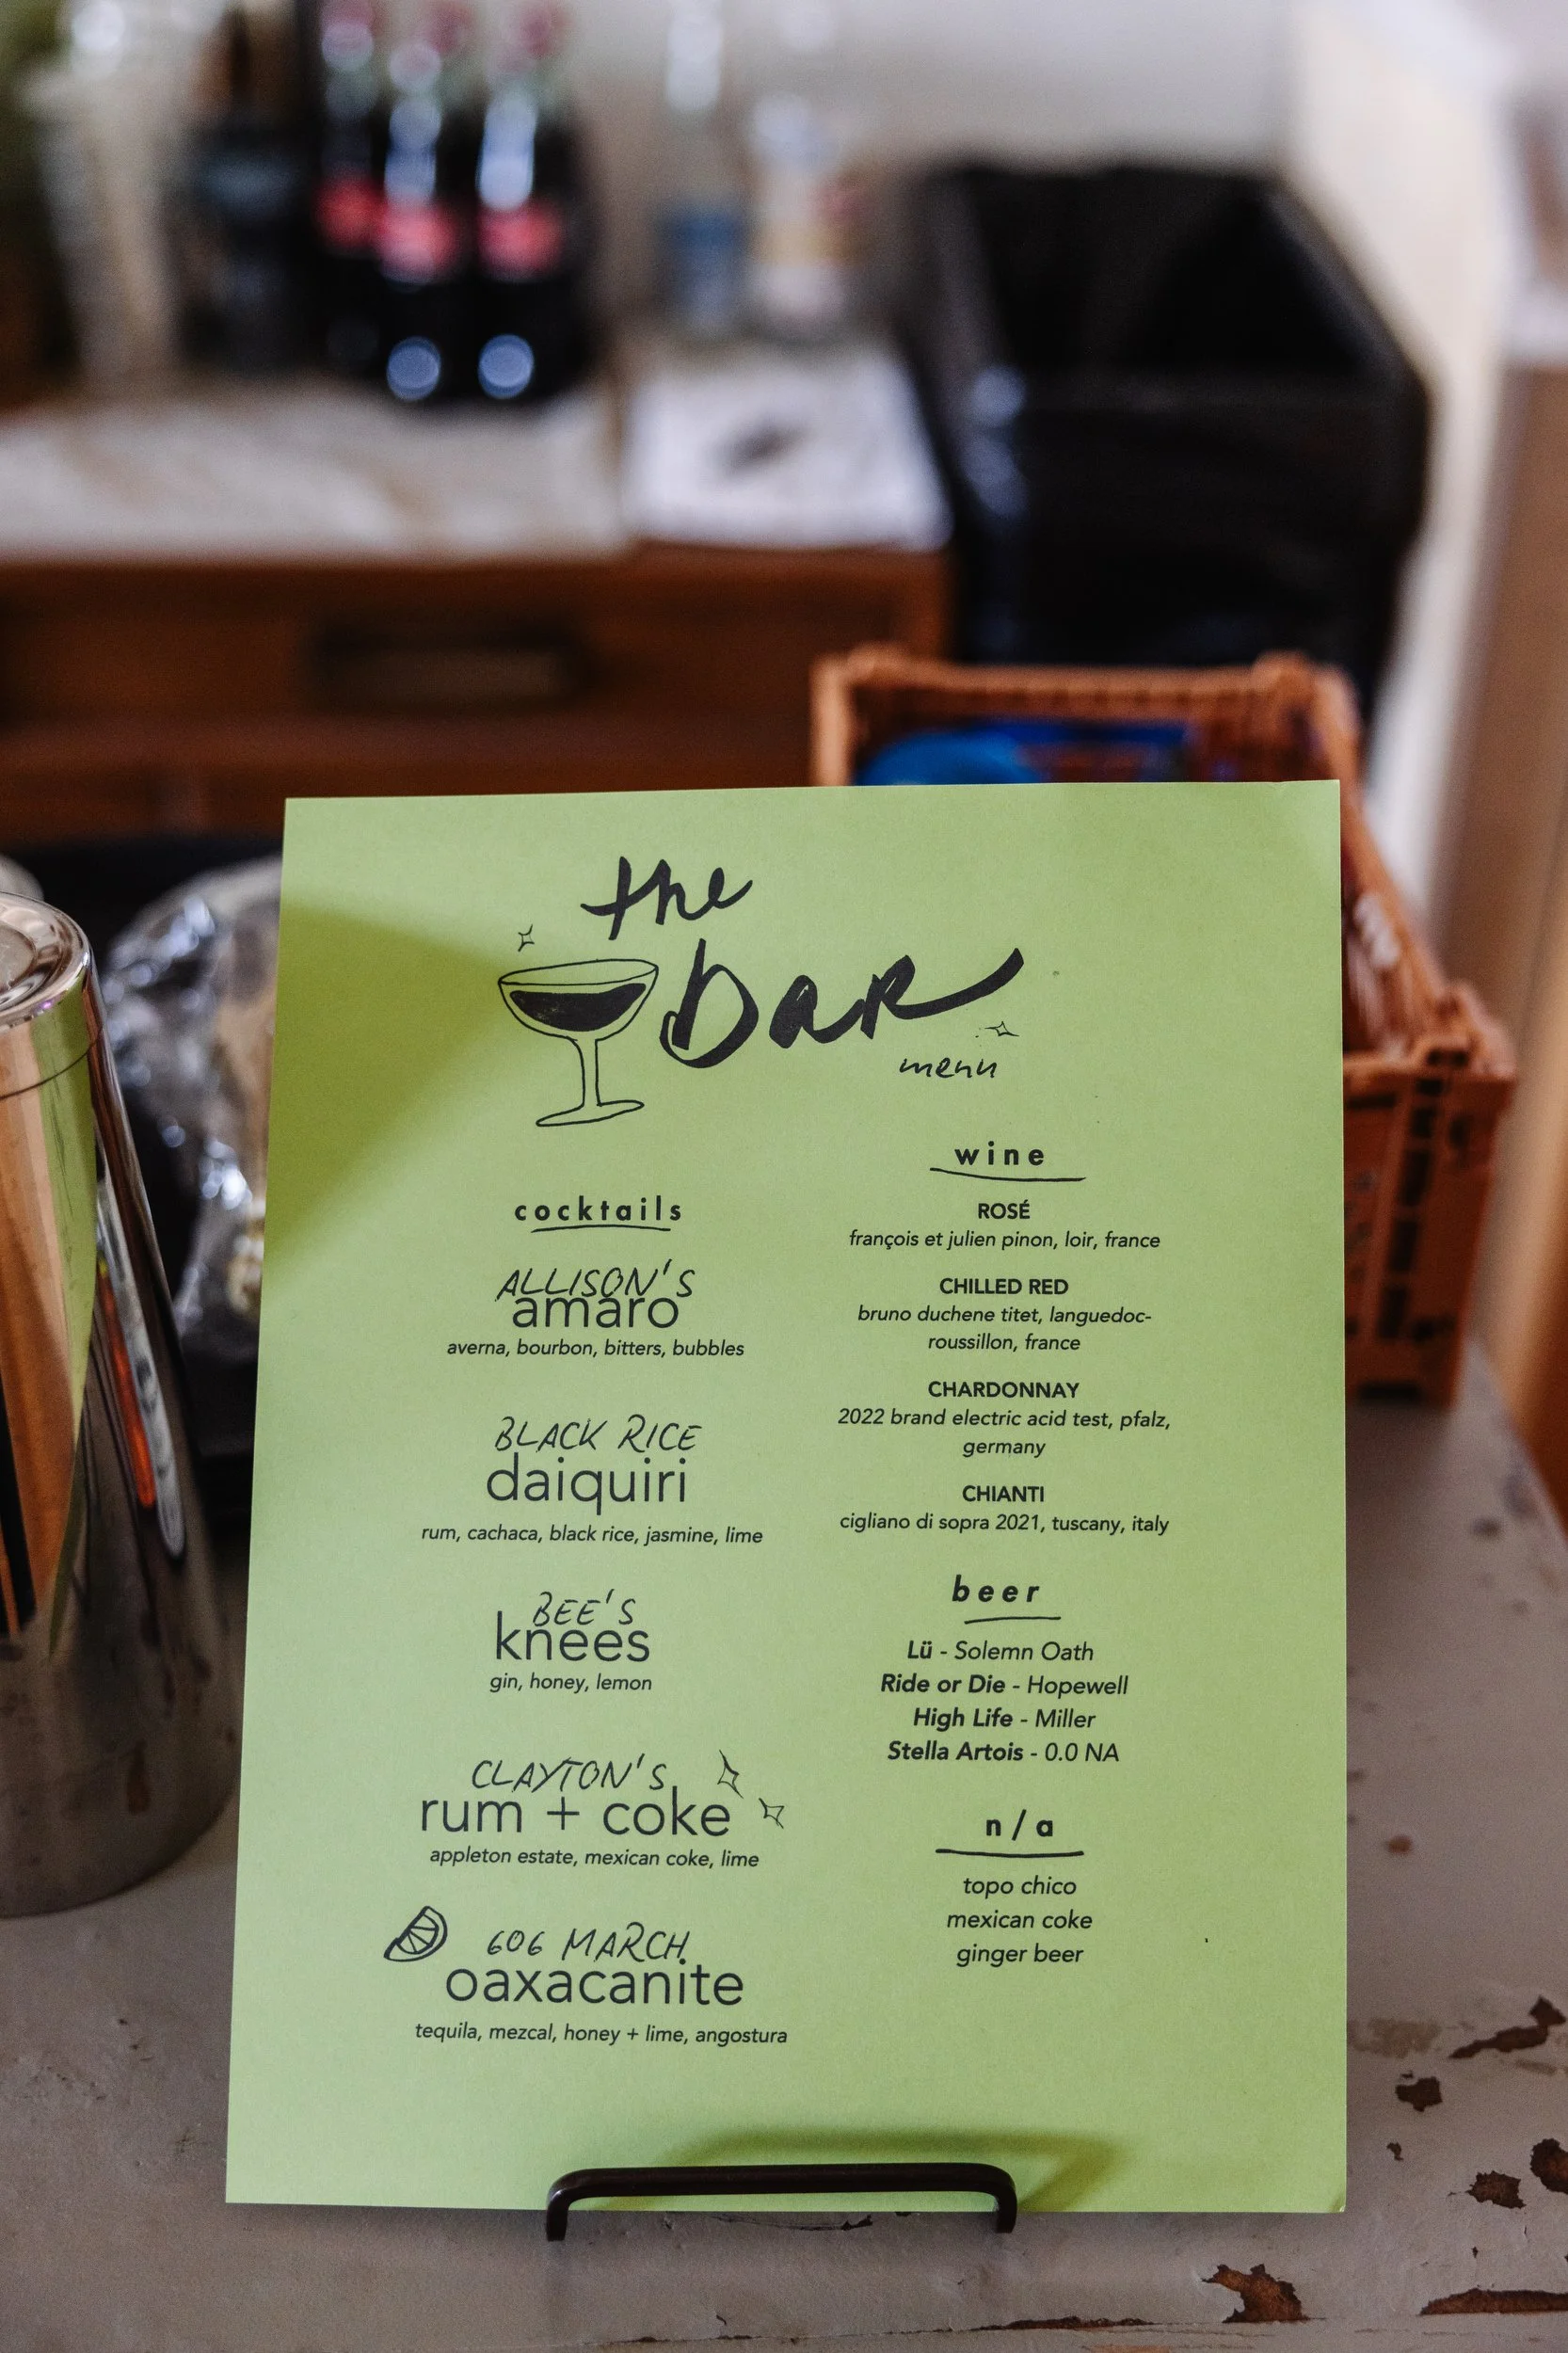 the
bar
menu
cocktails
ALLISON'S
amaro
averna, bourbon, bitters, bubbles
BLACK RICE
daiquiri
rum, cachaca, black rice, jasmine, lime
BEE'S
knees
gin, honey, lemon
CLAYTON'S
rum + coke
appleton estate, mexican coke, lime
606 MARCH
oaxacanite
tequila, mezcal, honey + lime, angostura
wine
ROSÉ
françois et julien pinon, loir, france
CHILLED RED
bruno duchene titet, languedoc-
roussillon, france
CHARDONNAY
2022 brand electric acid test, pfalz,
germany
CHIANTI
cigliano di sopra 2021, tuscany, italy
beer
Lü - Solemn Oath
Ride or Die - Hopewell
High Life - Miller
Stella Artois - 0.0 NA
n/a
topo chico
mexican coke
ginger beer